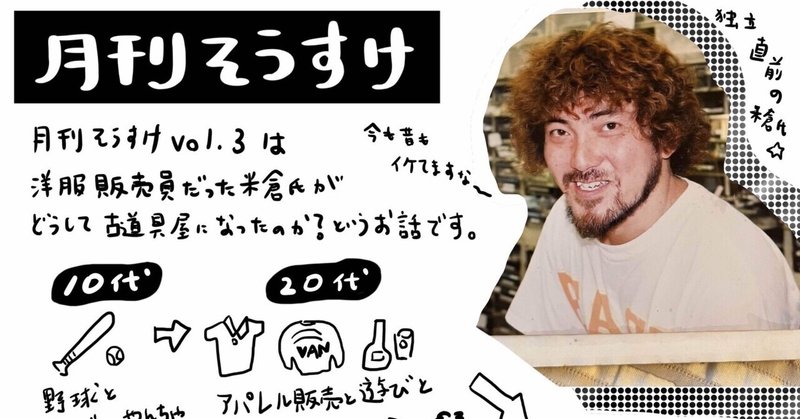 月刊そうすけ
独立
直前の
米倉氏☆
月刊そうすけ vol.3 は
洋服販売員だった米倉氏が
どうして古道具屋になったのか?というお話です。
今も昔も
イケてますな〜
10代
20代
VAN
野球と
やんちゃ
アパレル販売と遊びと